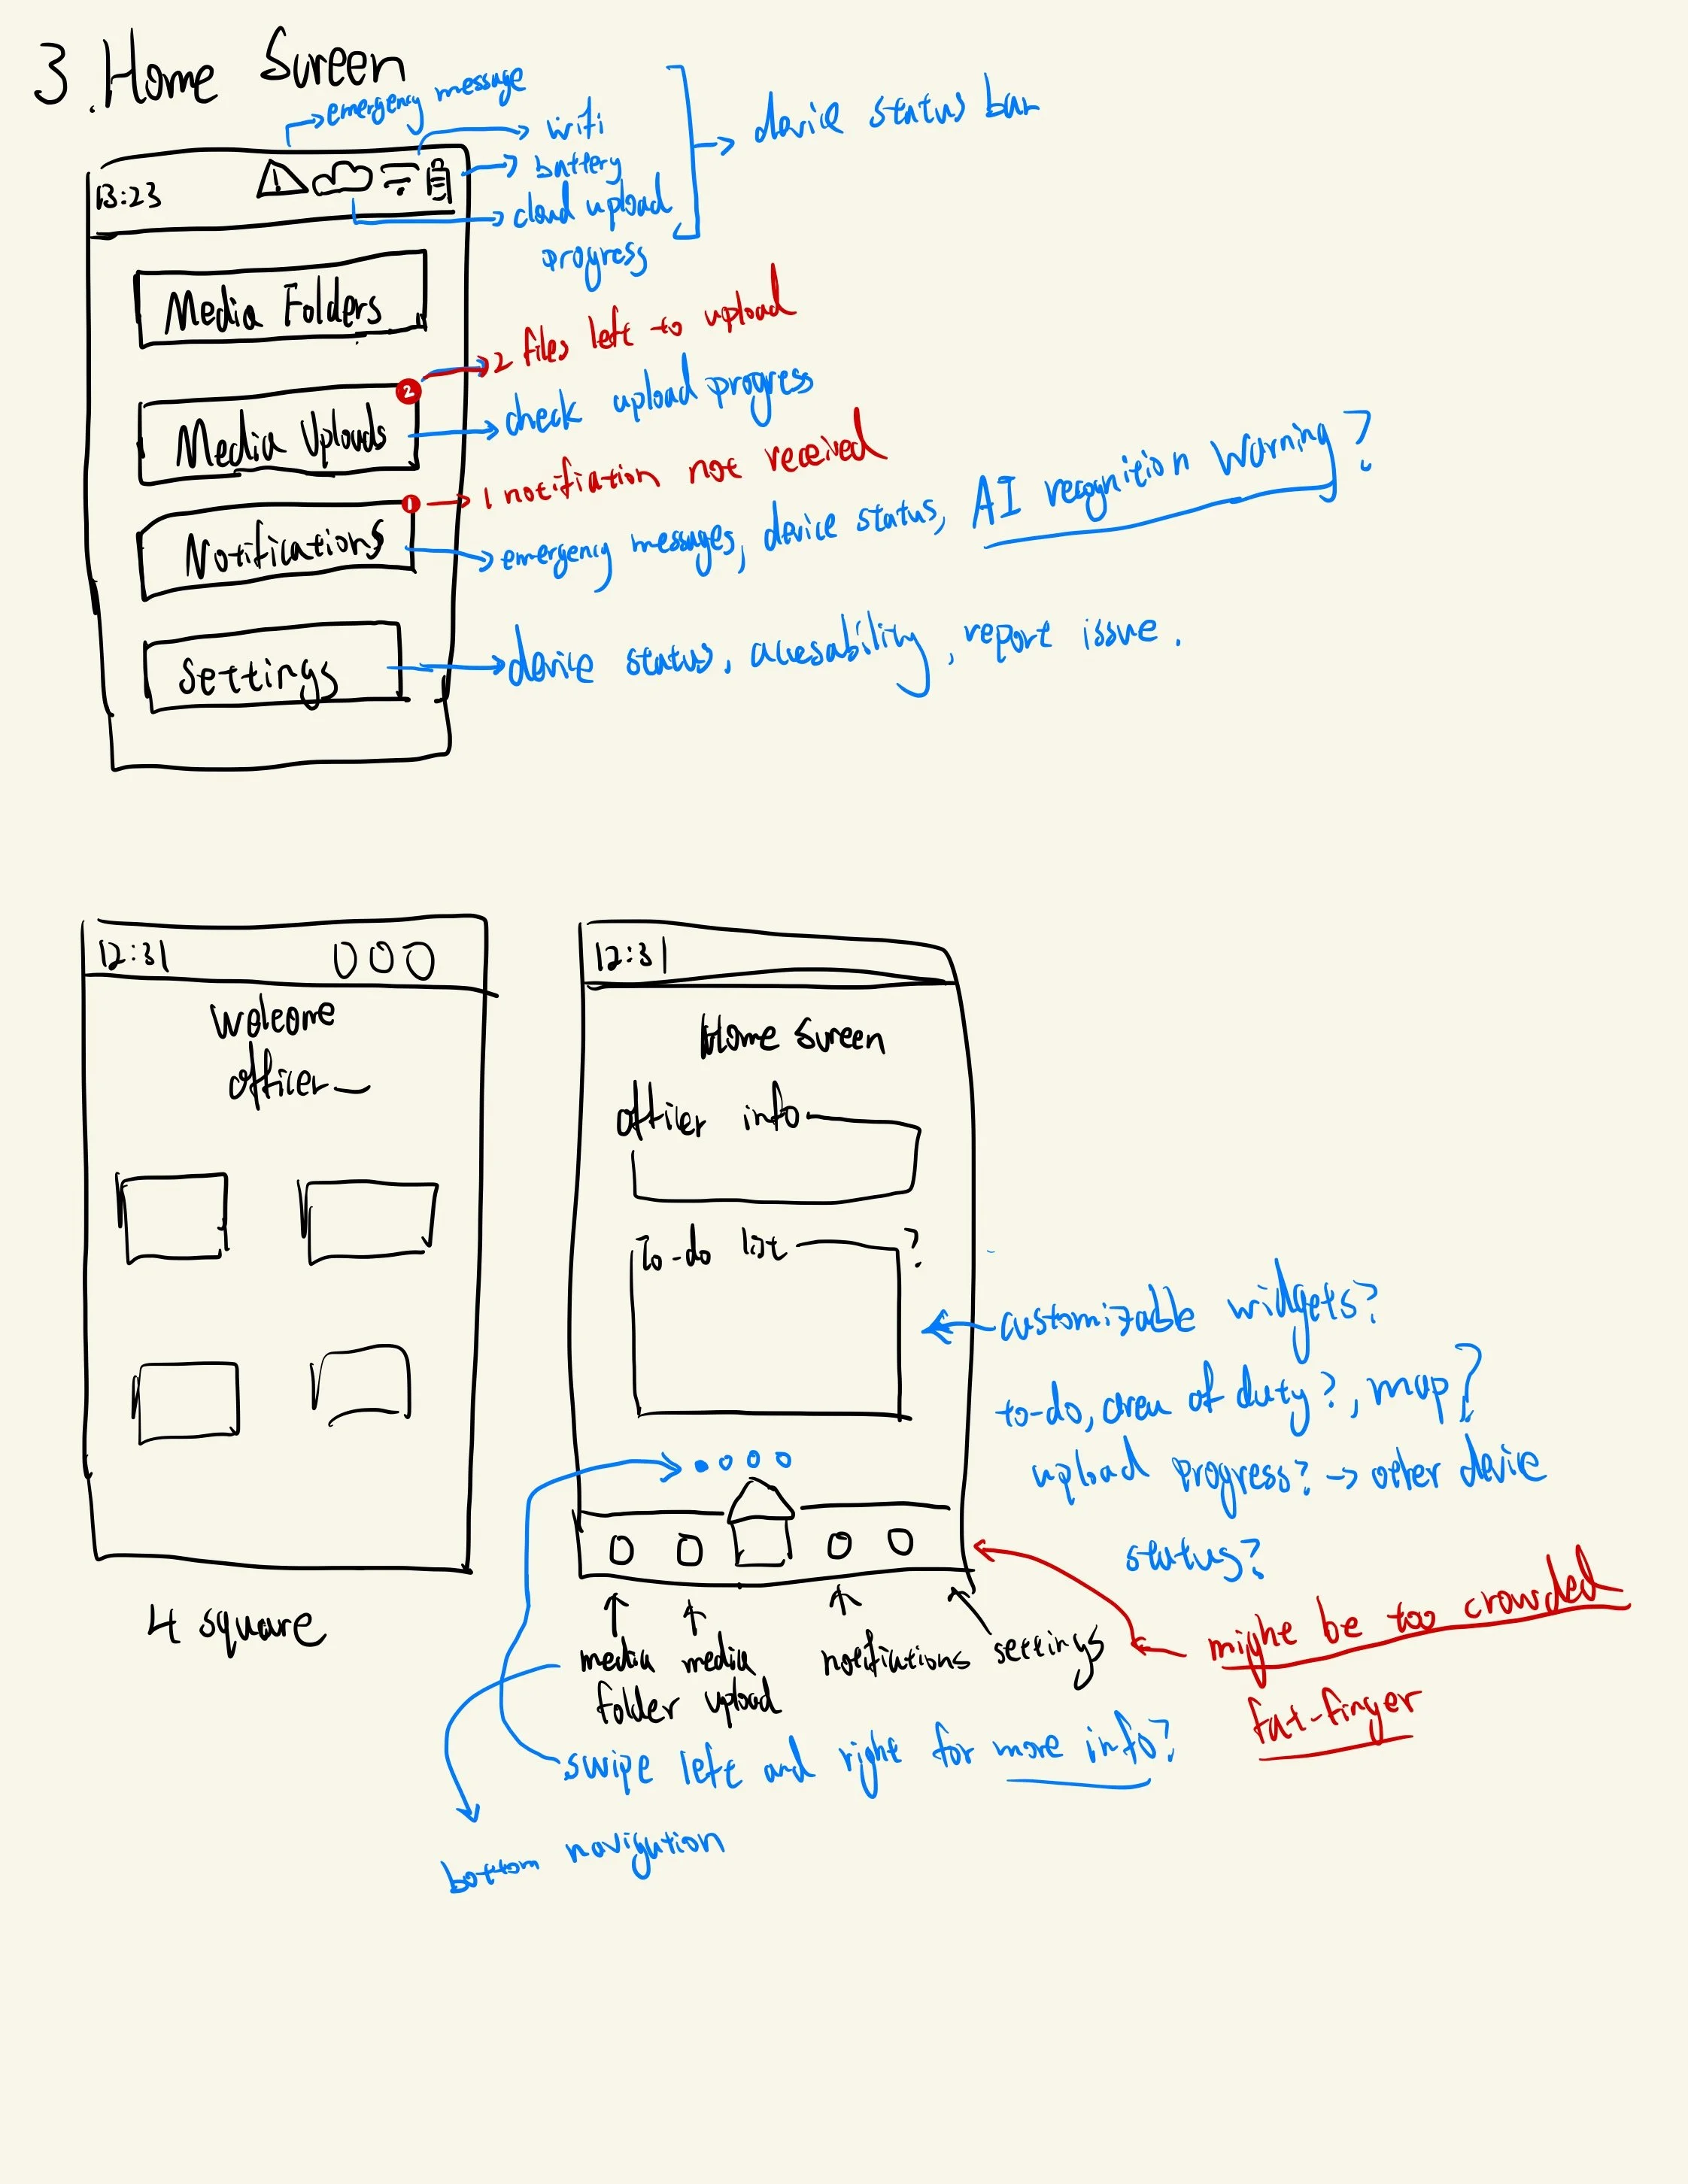 3. Home Sureen
emergency message
wifi
battery
cloud upload
progress
device status bar
13:23
Media Folders
2 files left to upload
2
Media Uploads
check upload progress
1 notifiation not received
1
Notifications
emergency messages, device status, AI recognition warning?
settings
device status, accesability, report issue.
12:31
Welcome
officer_
4 square
12:31
Home sureen
officer info
To-do list ?
customizable widgets?
to-do, area of duty?, map?
upload progress? → other device
status?
media folder
media upload
notifiations
settings
might be too crowded
fat-finger
swipe left and right for more info?
bottom navigation